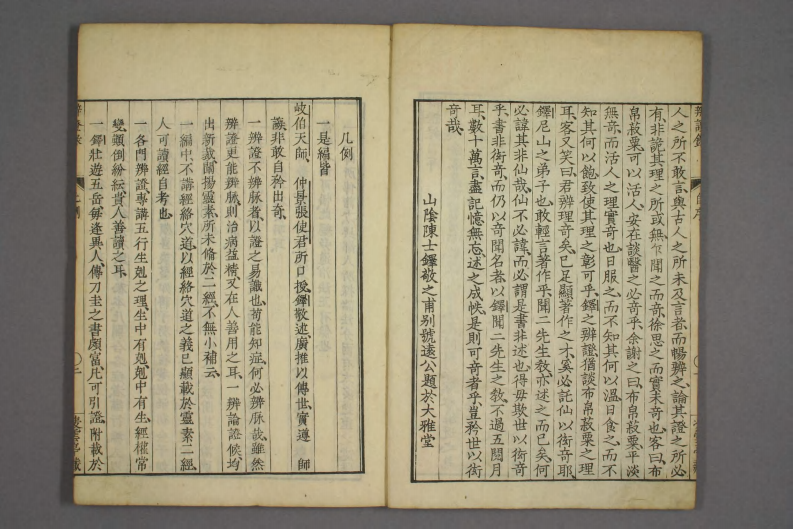 人之所不敢言與古人之所未及言者而暢辨之論其證之所必
有非詭其理之所或無乍聞之而奇徐思之而實未奇也客曰布
帛菽粟可以活人安在談醫之必奇乎余謝之曰布帛菽粟平淡
無奇而活人之理實奇也日服之而不知其何以溫日食之而不
知其何以飽致使其理之彰可乎鐸之辨證猶談布帛菽粟之理
耳客又笑曰君辨理奇矣已足顯著作之才奚必託仙以衒奇耶
鐸尼山之弟子也敢輕言著作乎聞二先生教亦述之而已矣何
必諱其非仙哉仙不必諱而必謂是書非述也得毋欺世以衒奇
乎書非衒奇而仍以奇聞名者以鐸聞二先生之教不過五閱月
耳數十萬言盡記憶無忘述之成帙是則可奇者乎豈矜世以衒
奇哉
山陰陳士鐸敬之甫別號遠公題於大雅堂
凡例
一是編皆
岐伯天師仲景張使君所口授鐸敬述廣推以傳世實遵師
誨非敢自矜出奇
一辨證不辨脉者以證之易識也苟能知症何必辨脉哉雖然
辨證更能辨脉則治病益精又在人善用之耳一辨論證候均
出新裁闡揚靈素所未備於二經不無小補云
一編中不講經絡穴道以經絡穴道之義已顯載於靈素二經
人可讀經自考也
一各門辨證專講五行生剋之理生中有剋剋中有生經權常
變顛倒紛紜貴人善讀之耳
一鐸壯遊五岳每逢異人傳刀圭之書頗富凡可引證附載於